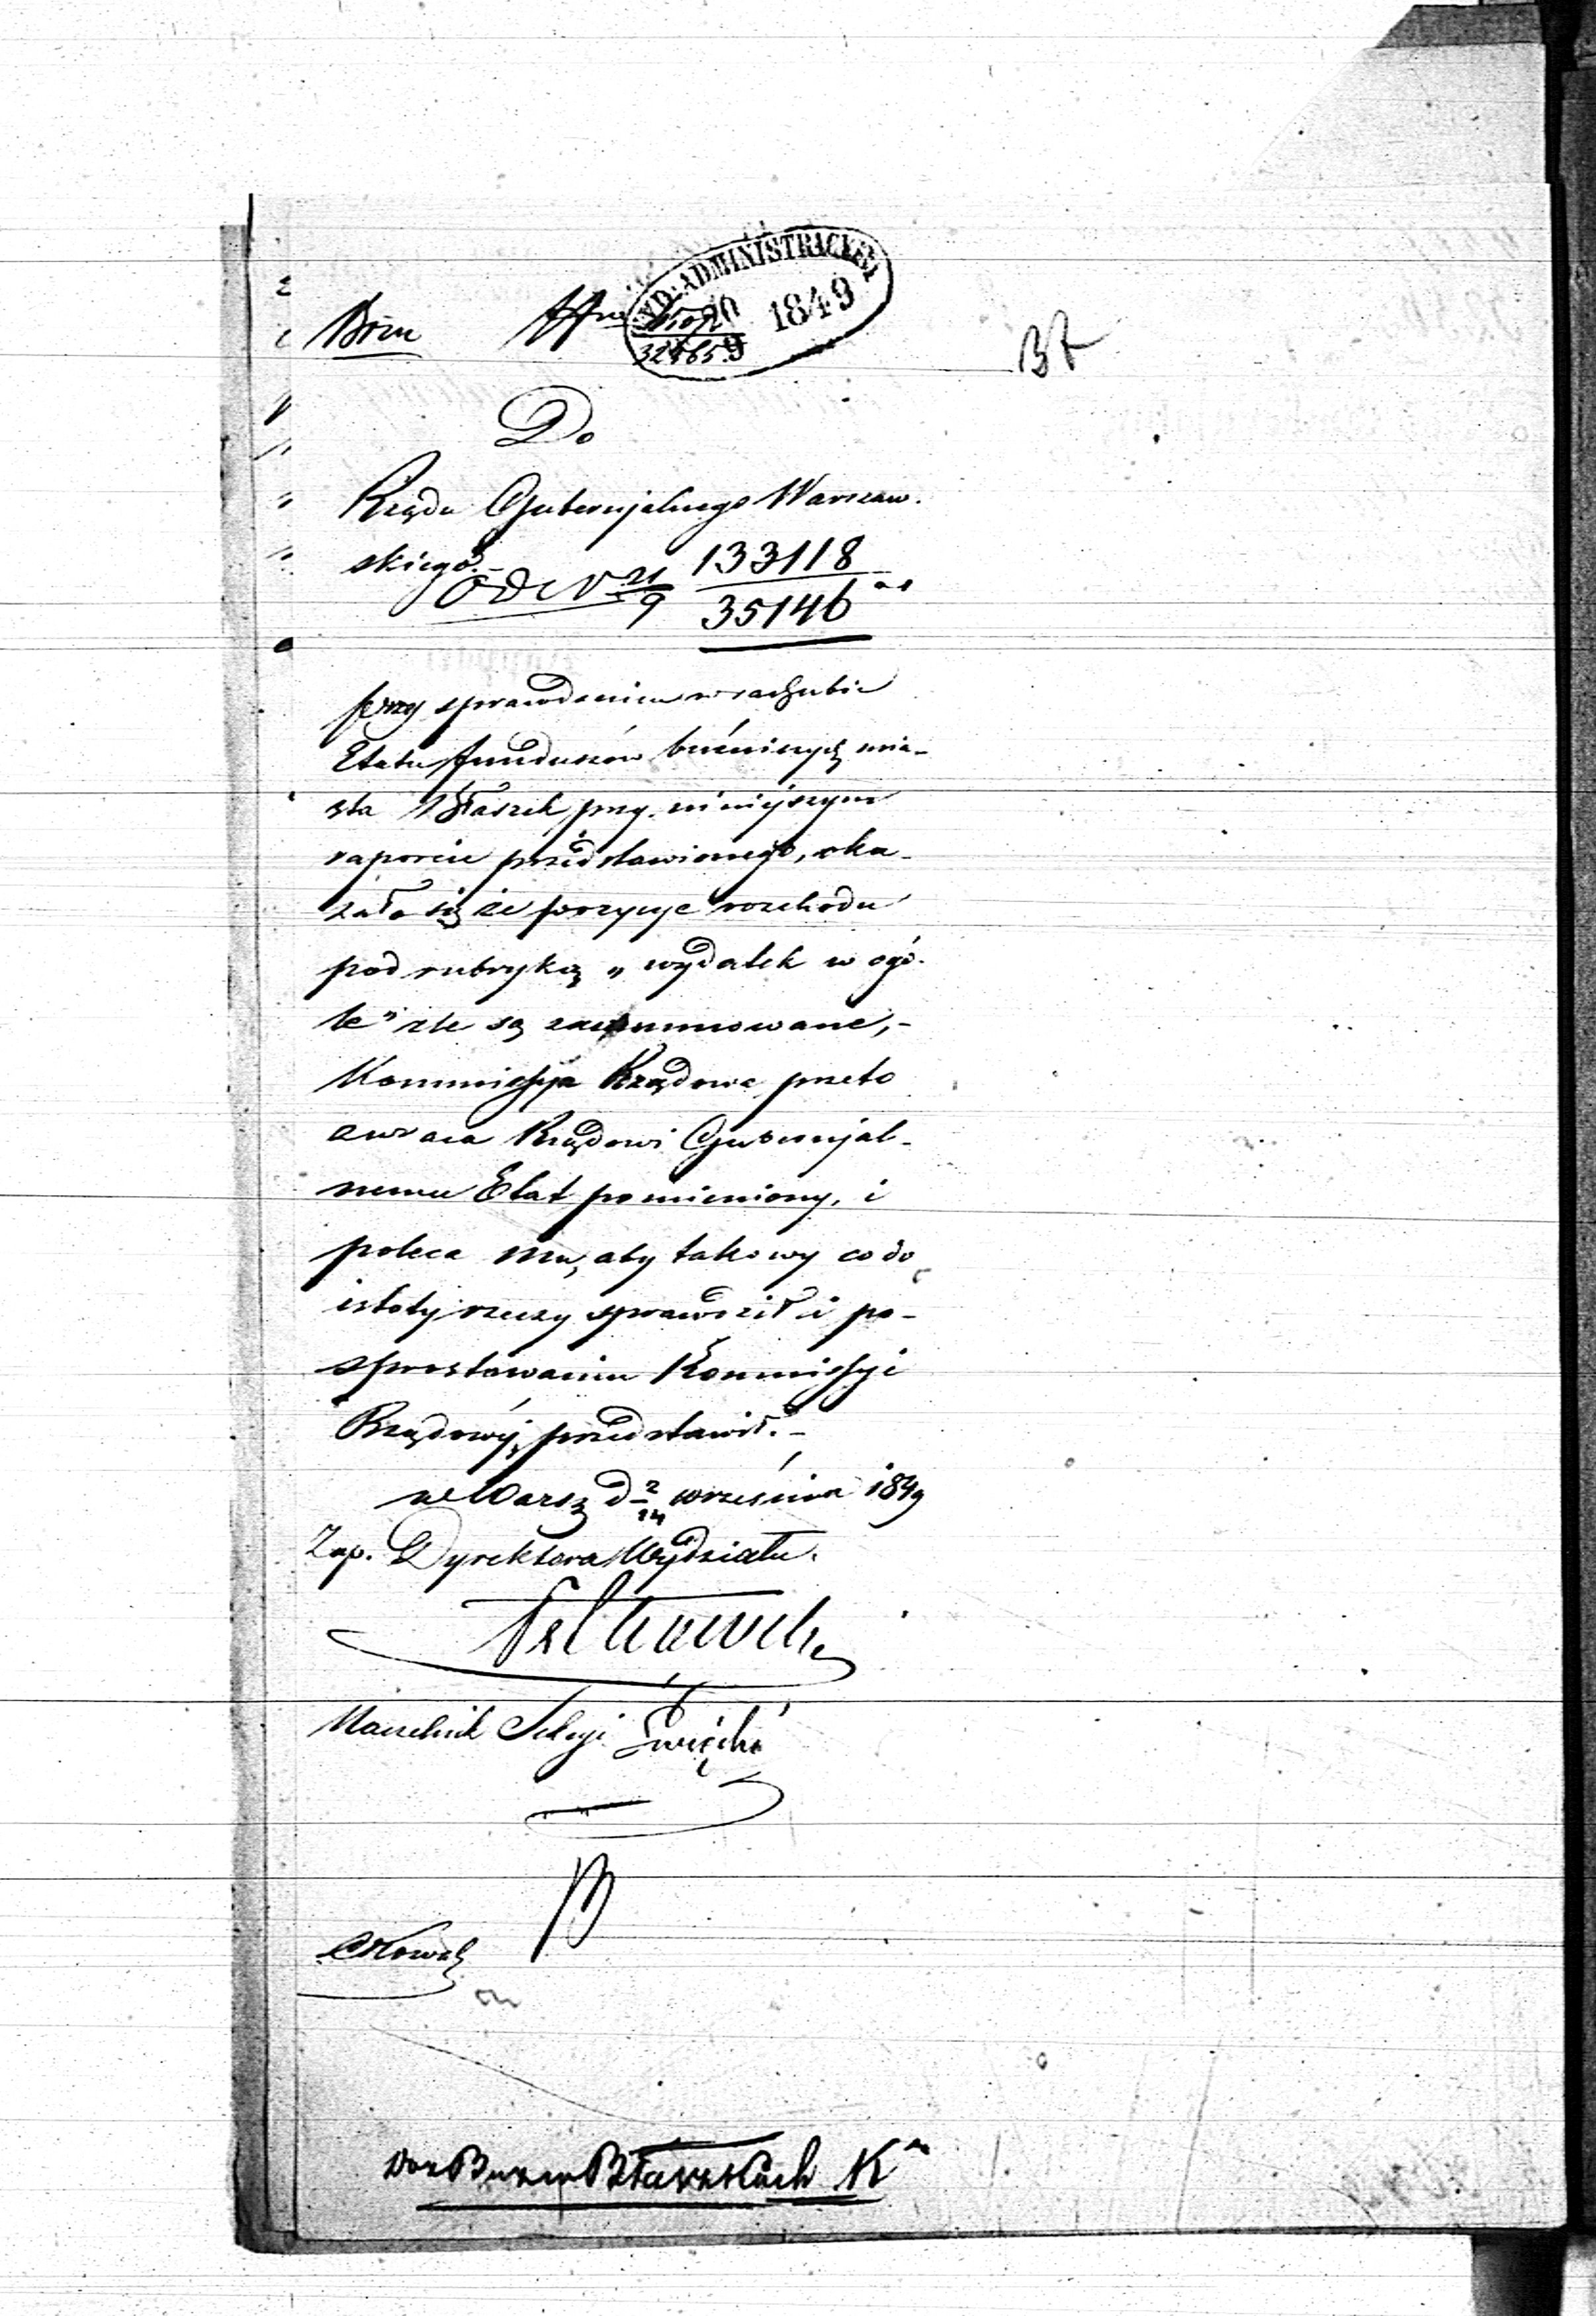 WYD: ADMINISTRACYJNY
20 1849
9
32465
37
Do
Rządu Gubernjalnego Warszaw-
skiego.-
Ode N 21/9 133118
35146
przy sprawdzeniu w rachubie
Etatu funduszów bużniczych mia-
sta Błaszek przy niniejszym
raporcie przedstawionego, oka-
zało się że pozycye rozchodu
pod rubryką „wydatek w ogó-
le" źle są zasummowane,-
Kommissyja Rządowa przeto
zwraca Rządowi Gubernjal-
nemu Etat pomieniony, i
poleca mu, aby takowy co do
istoty rzeczy sprawdził i po
sprostowaniu Kommissyi
Rządowéj przedstawił.-
w Warsz d 2/14 września 1849
Zap. Dyrektora Wydziału.
Naczelnik Sekcyi Święcki
w Błaszkach K